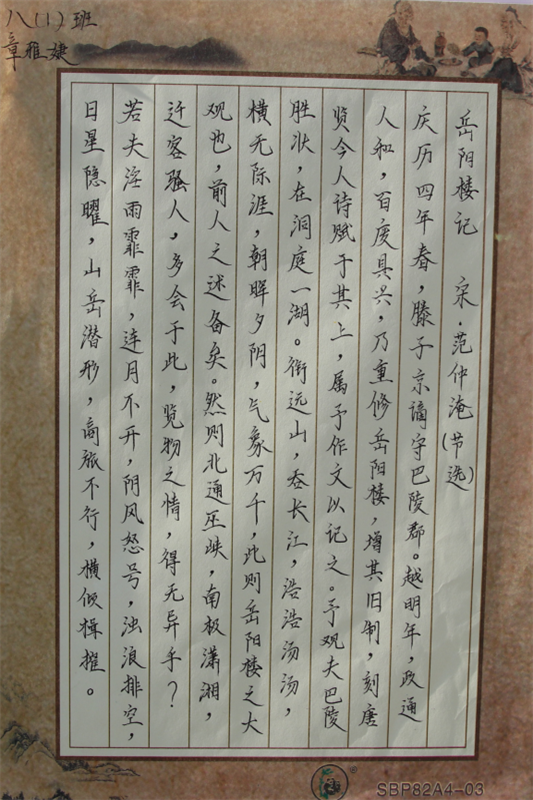 八(1)班
章雅婕
岳阳楼记 宋·范仲淹(节选)
庆历四年春，滕子京谪守巴陵郡。越明年，政通
人和，百废具兴，乃重修岳阳楼，增其旧制，刻唐
贤今人诗赋于其上，属予作文以记之。予观夫巴陵
胜状，在洞庭一湖。衔远山，吞长江，浩浩汤汤，
横无际涯，朝晖夕阴，气象万千，此则岳阳楼之大
观也，前人之述备矣。然则北通巫峡，南极潇湘，
迁客骚人，多会于此，览物之情，得无异乎？
若夫淫雨霏霏，连月不开，阴风怒号，浊浪排空，
日星隐曜，山岳潜形，商旅不行，樯倾楫摧。
SBP82A4-03